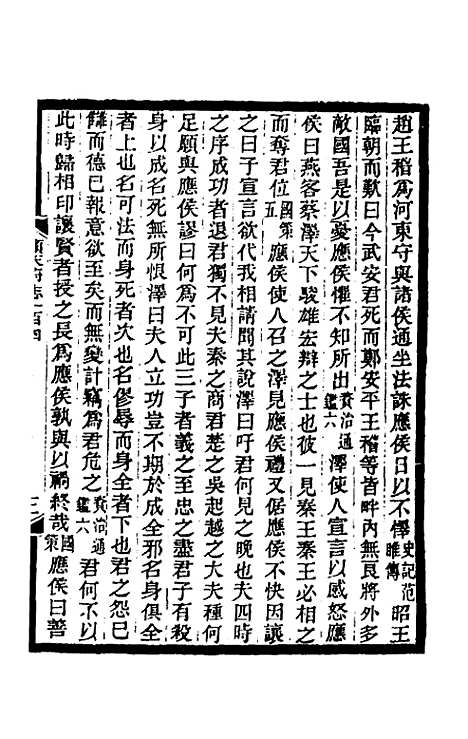 趙王稽爲河東守與諸侯通坐法誅應侯日以不懌史記范雎傳昭王
臨朝而歎曰今武安君死而鄭安平王稽等皆畔內無良將外多
敵國吾是以憂應侯懼不知所出資治通鑑六澤使人宣言以感怒應
侯曰燕客蔡澤天下駿雄宏辯之士也彼一見秦王秦王必相之
而奪君位國策五應侯使人召之澤見應侯禮又倨應侯不快因讓
之曰子宣言欲代我相請問其說澤曰吁君何見之晚也夫四時
之序成功者退君獨不見夫秦之商君楚之吳起越之大夫種何
足願與應侯謬曰何爲不可此三子者義之至忠之盡君子有殺
身以成名死無所恨澤曰夫人立功豈不期於成全邪名身俱全
者上也名可法而身死者次也名僇辱而身全者下也君之怨已
讎而德已報意欲至矣而無變計竊爲君危之資治通鑑六君何不以
此時歸相印讓賢者授之長爲應侯孰與以禍終哉國策應侯曰善
志一百四